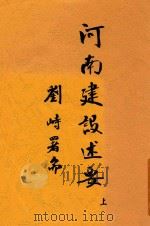 河南建設述要
上
劉峙署